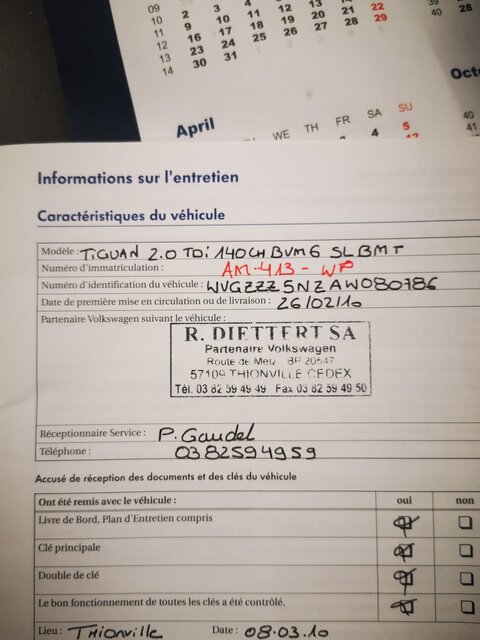 09
10 2 3 4
11 9 10 11 21 22
12 16 17 18 28 29
13 23 24 25 26 27
14 30 31
39
40 28
Octo
April
WE TH FR SA SU
4 5
40
41
Informations sur l'entretien
Caractéristiques du véhicule
Modèle : TIGUAN 2.0 TDi 140CH BVM6 SLBMT
Numéro d'immatriculation : AM-413-WP
Numéro d'identification du véhicule : WVGZZZ5NZAW080786
Date de première mise en circulation ou de livraison : 26/02/10
Partenaire Volkswagen suivant le véhicule :
R. DIETTERT SA
Partenaire Volkswagen
Route de Metz BP 20547
57109 THIONVILLE CEDEX
Tél. 03 82 59 49 49 Fax 03 82 59 49 50
Réceptionnaire Service : P. Gaudel
Téléphone : 0382594959
Accusé de réception des documents et des clés du véhicule
Ont été remis avec le véhicule : oui non
Livre de Bord, Plan d'Entretien compris
Clé principale
Double de clé
Le bon fonctionnement de toutes les clés a été contrôlé.
Lieu : Thionville Date : 08.03.10